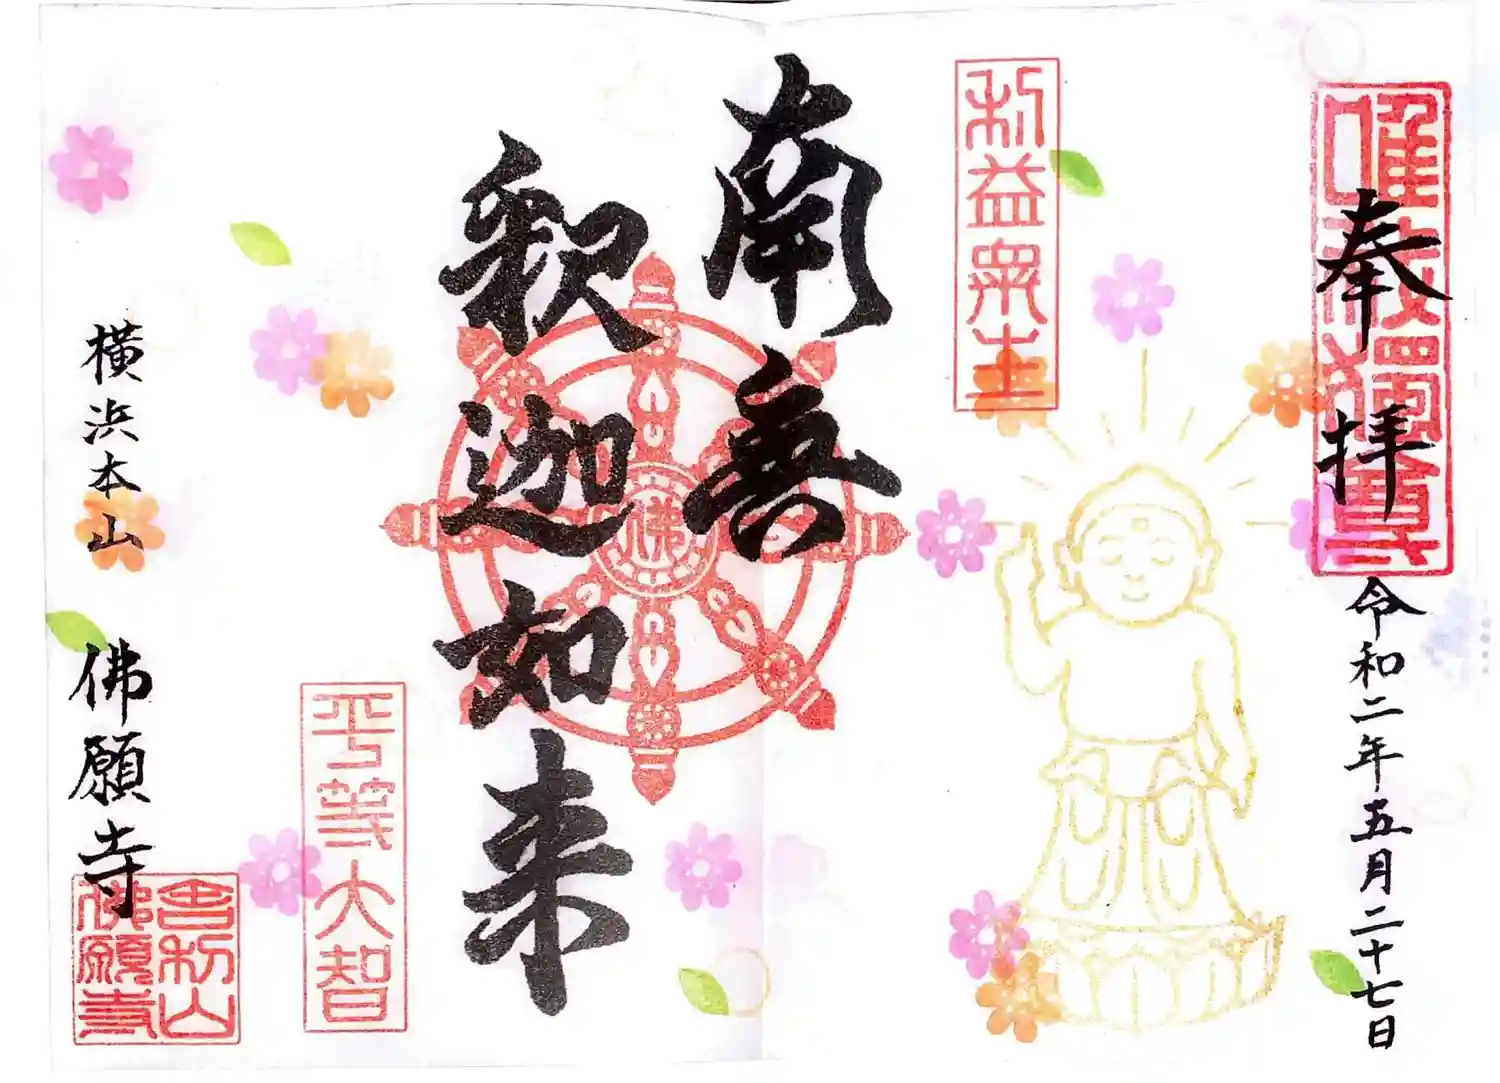 唯我獨尊
奉拝
令和二年五月二十七日
利益衆生
南無
釈迦如来
佛
平等大智
横浜本山 佛願寺
舎利山
佛願寺